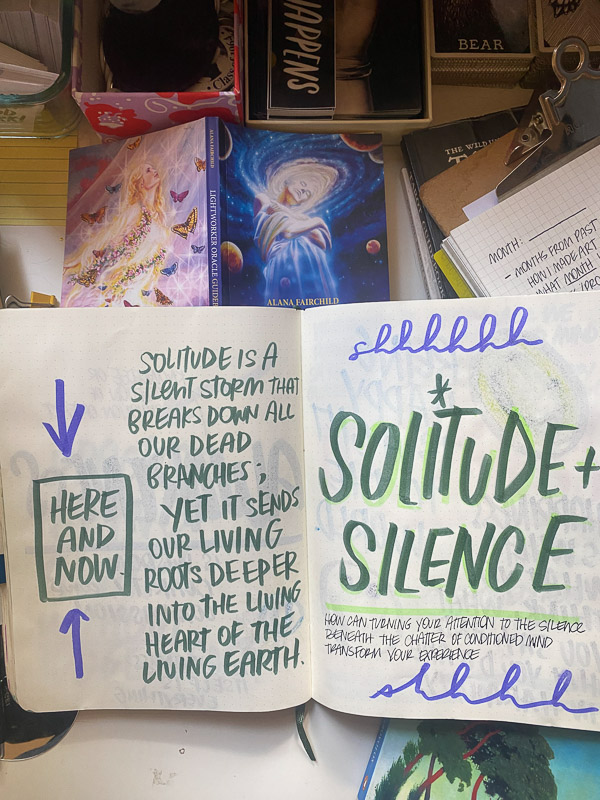 HAPPENS
BEAR
THE WILD
ALANA FAIRCHILD
LIGHTWORKER ORACLE GUIDEB
ALANA FAIRCHILD
MONTH:
- MONTHS FROM PAST
HOW I MADE ART
WHAT MONTH
HERE
AND
NOW.
SOLITUDE IS A
SILENT STORM THAT
BREAKS DOWN ALL
OUR DEAD
BRANCHES;
YET IT SENDS
OUR LIVING
ROOTS DEEPER
INTO THE LIVING
HEART OF THE
LIVING EARTH.
shhhhhh
*
SOLITUDE +
SILENCE
HOW CAN TURNING YOUR ATTENTION TO THE SILENCE
BENEATH THE CHATTER OF CONDITIONED MIND
TRANSFORM YOUR EXPERIENCE
shhhh